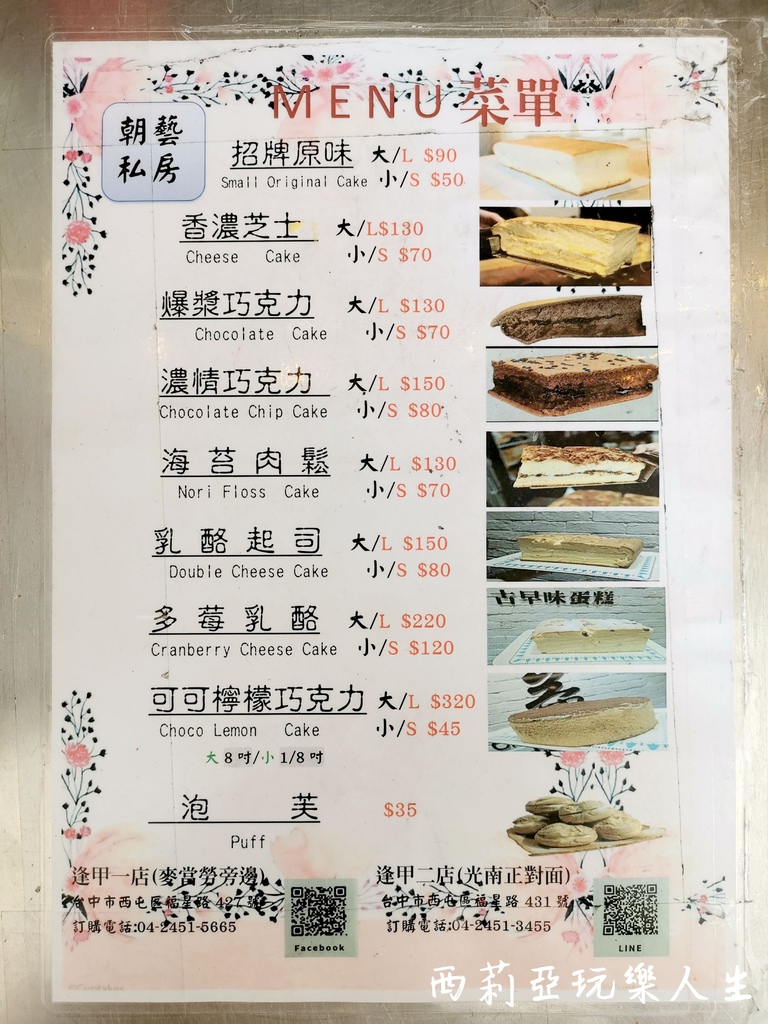 MENU菜單
朝藝
私房
招牌原味 大/L $90
Small Original Cake 小/S $50
香濃芝士 大/L$130
Cheese Cake 小/S $70
爆漿巧克力 大/L $130
Chocolate Cake 小/S $70
濃情巧克力 大/L $150
Chocolate Chip Cake 小/S $80
海苔肉鬆 大/L $130
Nori Floss Cake 小/S $70
乳酪起司 大/L $150
Double Cheese Cake 小/S $80
古早味蛋糕
多莓乳酪 大/L $220
Cranberry Cheese Cake 小/S $120
可可檸檬巧克力 大/L $320
Choco Lemon Cake 小/S $45
大 8 吋/小 1/8 吋
泡芙 $35
Puff
逢甲一店(麥當勞旁邊)
台中市西屯區福星路 427 號
訂購電話:04-2451-5665
Facebook
逢甲二店(光南正對面)
台中市西屯區福星路 431 號
訂購電話:04-2451-3455
LINE
西莉亞玩樂人生